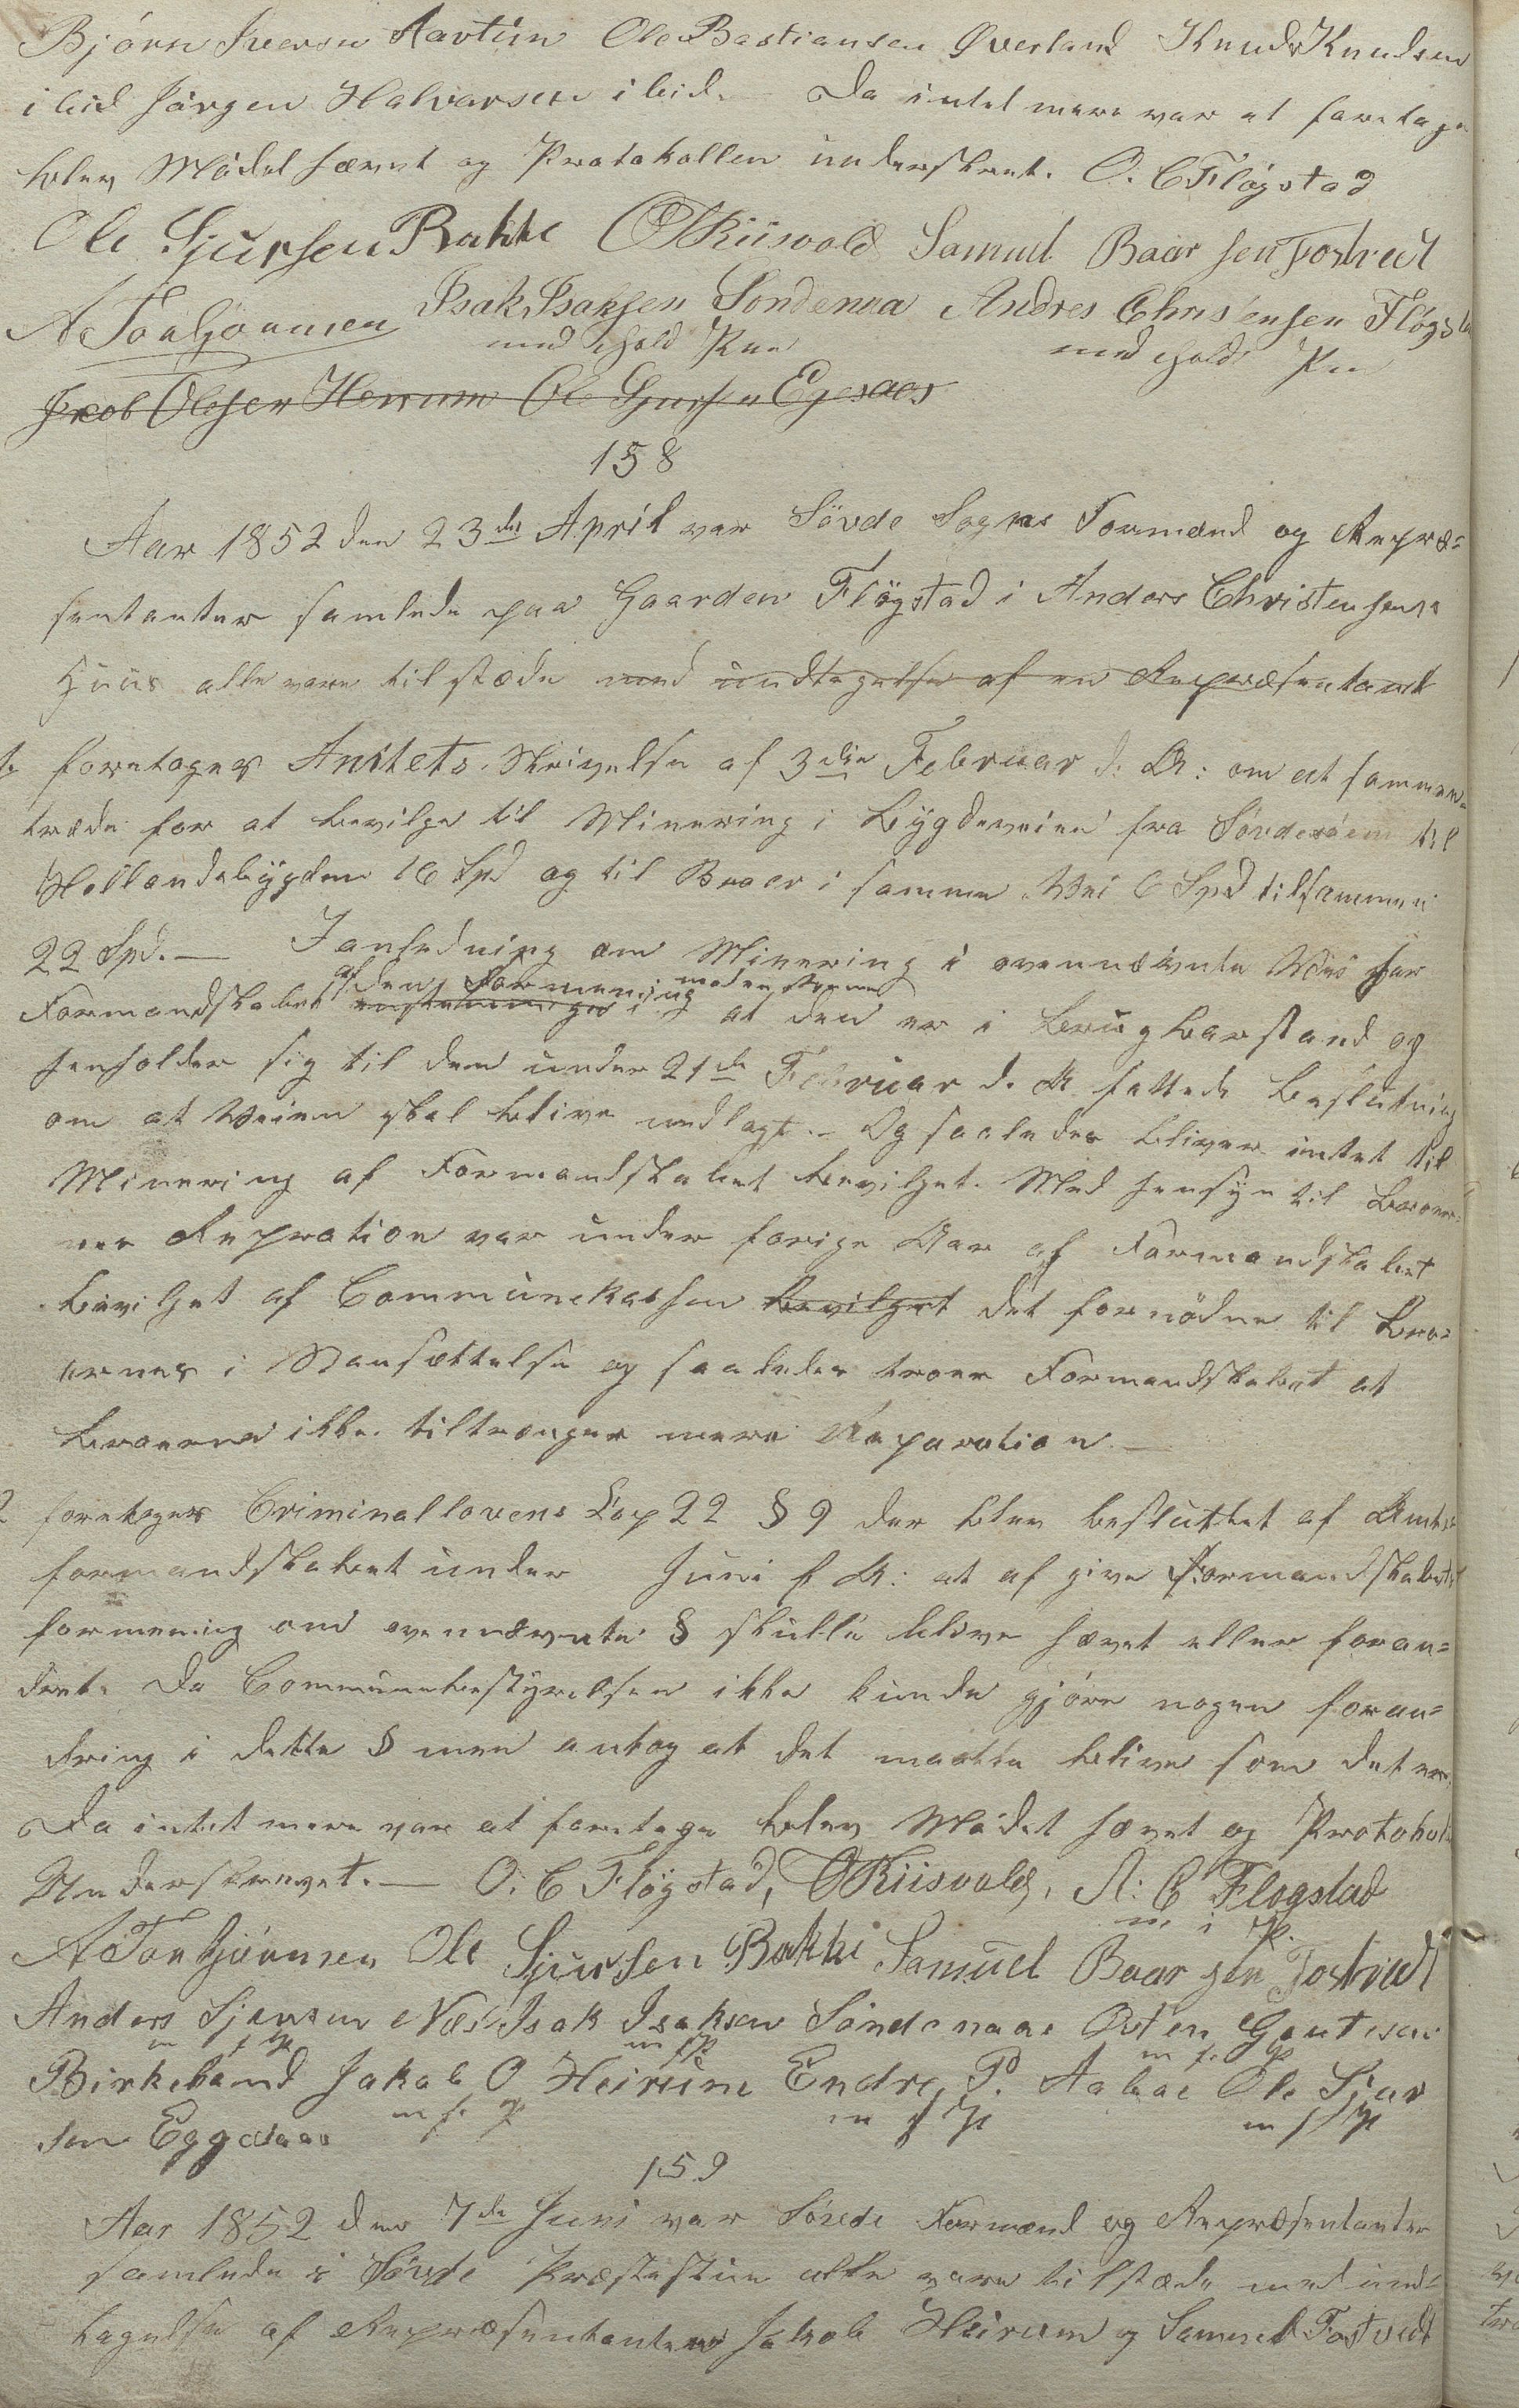 Bjørn Iversen Aartun Ole Bastiansen Øverland Knud Knudsen
ibid Jørgen Halvarsen ibid. Da intet mere var at foretage
blev Mødet hævet og Protokollen underskret. O. C Fløgstad
Ole Sjursen Bakke O Riisvold Samuel Baarsen Fostvedt
A Torbjørnsen Isak Isaksen Søndenaa Andres Christensen Fløgsta
med hold Pen med hold Pen
Jacob Olesen Herrum Ole Sjursen Egesaas
158
Aar 1852 den 23de April var Søvde Sogns Formænd og Repræ=
sentanter samlede paa Gaarden Fløgstad i Anders Christensens
Huus alle vare tilstæde med undtagelse af en Repræsentant
1 foretoges Amtets Skrivelse af 3die Februar d: A: om at sammen=
træde for at bevilge til Minering i Bygdeveien fra Søvdesøen til
Hellandsbygden 16 Spd og til Broer i samme Vei 6 Spd tilsammen
22 Spd. — I anledning om Minering i ovennævnte Vei har
Formandskabet af den formening med en stemme
enstemmiges i at den er i brugbarstand og
henholder sig til den under 21de Februar d. A fattede Beslutning
om at Veien skal blive nedlagt. - Og saaledes bliver intet til
Minering af Formandskabet bevilget. Med hensyn til Broer=
nes Repration var under forige Aar af Formandskabet
bevilget af Communekassen bevilget det fornødne til Bro=
ernes i Stansættelse og saaledes troer Formandskabet at
Broerne ikke tiltrænger mere Reparation. —
2 foretoges Criminallovens Cap 22 § 9 der blev besluttet af Amts
formandskabet under Juni f A: at afgive Formandskabets
formening om ovennævnte § skulle blive hævet eller foran=
dret. Da Communebestyrelsen ikke kunde gjøre nogen foran=
dring i dette § men antog at det maatte blive som det er.
Da intet mere var at foretage blev Mødet hævet og Protokol
Underskrevet. — O. C Fløgstad, O Riisvold, A: C Flogstad
m i P.
A Torbjørnsen Ole Sjursen Bakke Samuel Baarsen Fostvedt
Anders Sjursen Næs Isak Isaksen Søndenaae Østen Gautesen
m f P m f P m f. P
Birkeland Jakob O Heirum Endre P. Aabøe Ole Sjur
sen Eggesaas m f. P m f P m f P
159
Aar 1852 den 7de Juni var Søvde Formænd og Repræsentanter
samlede i Søvde Præstestue alle vare tilstæde med und=
tagelse af Repræsentanten Jakob Heirum og Samuel Fostvedt